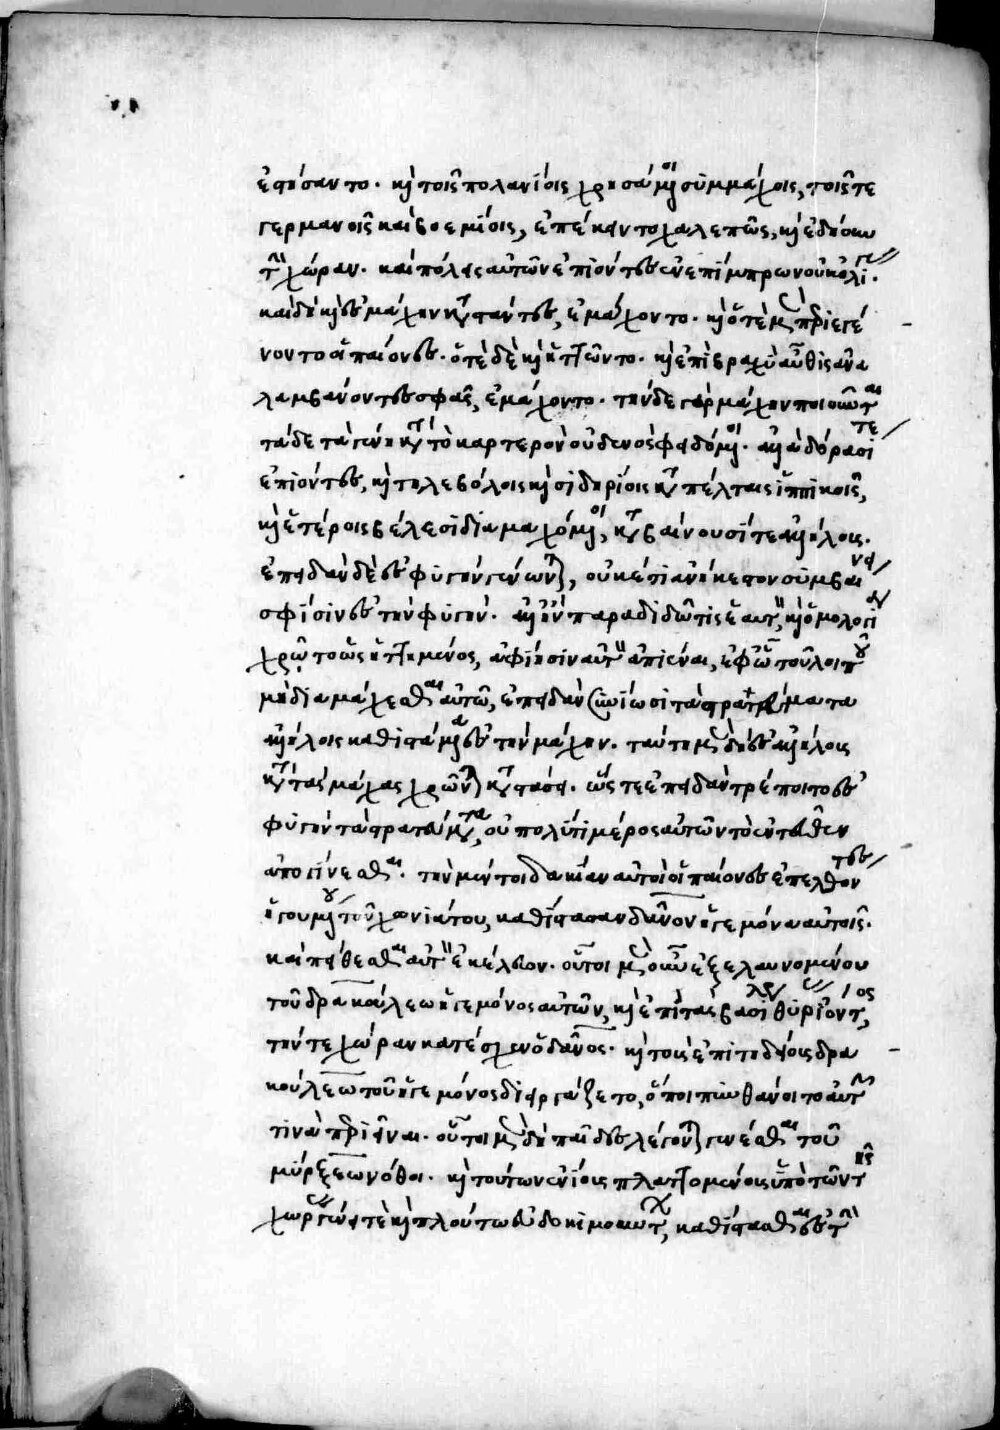 ἐτήσαντο. καὶ τοῖς πολανίοις χρησάμενοι συμμάχοις, τοῖς τε
γερμανοῖς καὶ βοεμίοις, ἐπέκειντο χαλεπῶς, καὶ ἐδῄουν
τὴν χώραν. καὶ πόλεις αὐτῶν ἐπιόντες ἐνεπίμπρων οὐκ ὀλίγας.
καὶ δὴ καὶ ἐς μάχην καταστάντες, ἐμάχοντο. καὶ ὁτὲ μὲν περιεγέ
νοντο οἱ παίονες. ὁτὲ δὲ καὶ ἡττῶντο. καὶ ἐπὶ βραχὺ αὖθις ἀνα
λαμβάνοντες σφᾶς, ἐμάχοντο. τὴν δὲ γὰρ μάχην ποιοῦνται
τάδε τὰ γένη κατὰ τὸ καρτερὸν οὐδενὸς φειδόμενοι. καὶ δόρασί τε
ἐπιόντες, καὶ τηλεβόλοις καὶ σιδηρίοις καὶ πέλταις ἱππικοῖς,
καὶ ἑτέροις βέλεσι διαμαχόμενοι, καταβαίνουσί τε ἀλλήλοις.
ἐπειδὰν δὲ ἐς φυγὴν γένωνται, οὐκέτι ἀνήκεστον συμβαίνει
σφίσιν ἐς τὴν φυγήν. καὶ ἢν παραδιδῶ τις ἑαυτὸν, καὶ ὁμολογεῖ
χρῷτο ὡς ἡττημένος, ἀφίησιν αὐτὸν ἀπιέναι, ἐφ' ᾧ τοῦ λοιποῦ
μὴ διαμάχεσθαι αὐτῷ, ἐπειδὰν συνίωσι τὰ στρατεύματα
ἀλλήλοις καθιστάμενα ἐς τὴν μάχην. ταύτῃ μὲν δὴ ἐς ἀλλήλους
κατὰ τὰς μάχας χρῶνται καταστάσει. ὥστε ἐπειδὰν τρέποιτο ἐς
φυγὴν τὰ στρατεύματα, οὐ πολύ τι μέρος αὐτῶν τὸ ἐντεῦθεν
ἀπογίνεσθαι. τὴν μέντοι δακίαν αὐτοὶ οἱ παίονες ἐπελθόντες
ἡγουμένου τοῦ χωνιάτου, καθίστασαν δᾶνον ἡγεμόνα αὐτοῖς.
καὶ πείθεσθαι αὐτῷ ἐκέλευον. οὗτοι μὲν οὖν ἐξελαυνομένου
τοῦ δρακούλεω ἡγεμόνος αὐτῶν, καὶ ἐπὶ τὰς βασιλέως θύρας ἰόντος,
τήν τε χώραν κατέσχεν ὁ δᾶνος. καὶ τοὺς ἐπιτηδείους δρα
κούλεω τοῦ ἡγεμόνος διεργάζετο, ὅποι πυνθάνοιτο αὐτῶν
τινὰ περιεῖναι. οὗτοι μὲν δὴ παῖδες λέγονται γενέσθαι τοῦ
μύρξεω νόθοι. καὶ τούτων ἐνίοις πλαττομένοις ὑπὸ τῶν τῆς
χώρας γένει τε καὶ πλούτῳ εὐδοκιμούντων, καθίστασθαι ἐς τὴν